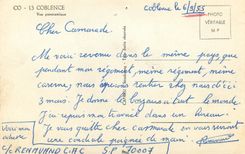 CO - 13 COBLENCE
Vue panoramique
Coblence le 6/3/55
PHOTO
VÉRITABLE
M P
Cher Camarade.
Me voici revenu dans le même pays, que
pendant mon régiment, même régiment, même
caserne, nous aprons rester chez nous d'ici
3 mois. Je donne le bonjour à tout le monde
j'ai repris mon travail dans un bureau.
Je vous quitte cher camarade en vous serrant
une cordiale poignée de main.
Voici mon
adresse
C/c REHAUAND C.H.C S.P 70007